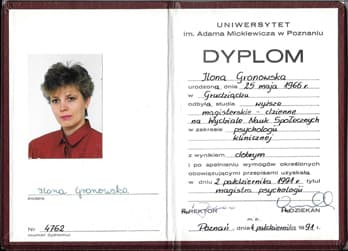 Ilona Gronowska
Nr 4762
UNIWERSYTET
im. Adama Mickiewicza w Poznaniu
DYPLOM
Ilona Gronowska
urodzona dnia 25 maja 1966 r.
w Grudziądzu
odbyła studia wyższe
magisterskie - dzienne
na Wydziale Nauk Społecznych
w zakresie psychologii
klinicznej
z wynikiem dobrym
i po spełnieniu wymogów określonych
obowiązującymi przepisami uzyskała
w dniu 2 października 1991 r. tytuł
magistra psychologii
REKTOR
DZIEKAN
m.p.
Poznań dnia października 1991